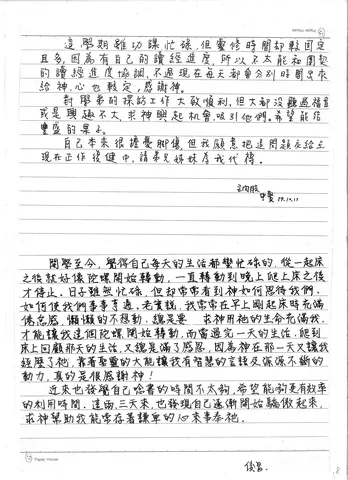 這學期雖功課忙碌,但靈修時間卻較固定
且多,因為有自己的讀經進度,所以不太能和團契
的讀經進度協調,不過現在每天都會分別時間出來
給神,心也較定,感謝神。
對學弟的探訪工作大致順利,但大都沒聽過福音
或是興趣不大,求神興起機會,吸引他們。希望能結
豐盛的果子。
自己本來很擔憂腳傷,但我願意把這問題交給主
現在正作復健中,請弟兄姊妹為我代禱。
開學至今,覺得自己每天的生活都蠻忙碌的,從一起床
之後就好像陀螺開始轉動,一直轉動到晚上爬上床之後
才停止,日子雖然忙碌,但卻常常看到神如何恩待我們,
如何使我們事事亨通,老實說,我常常在早上剛起床時充滿
倦怠感,懶懶的不想動,總是要 求神用祂的生命充滿我,
才能讓我這個陀螺開始轉動,而當過完一天的生活,爬到
床上回顧那天的生活,又總是滿了感恩,因為神在那一天又讓我
經歷了祂,靠著聖靈的大能讓我有智慧的言語及源源不斷的
動力,真的是很感謝神!
近來也發覺自己唸書的時間不太夠,希望能夠更有效率
的利用時間,這兩、三天來,也發現自己逐漸開始驕傲起來,
求神幫助我能常存著謙卑的心來事奉祂。
俊昌.
8